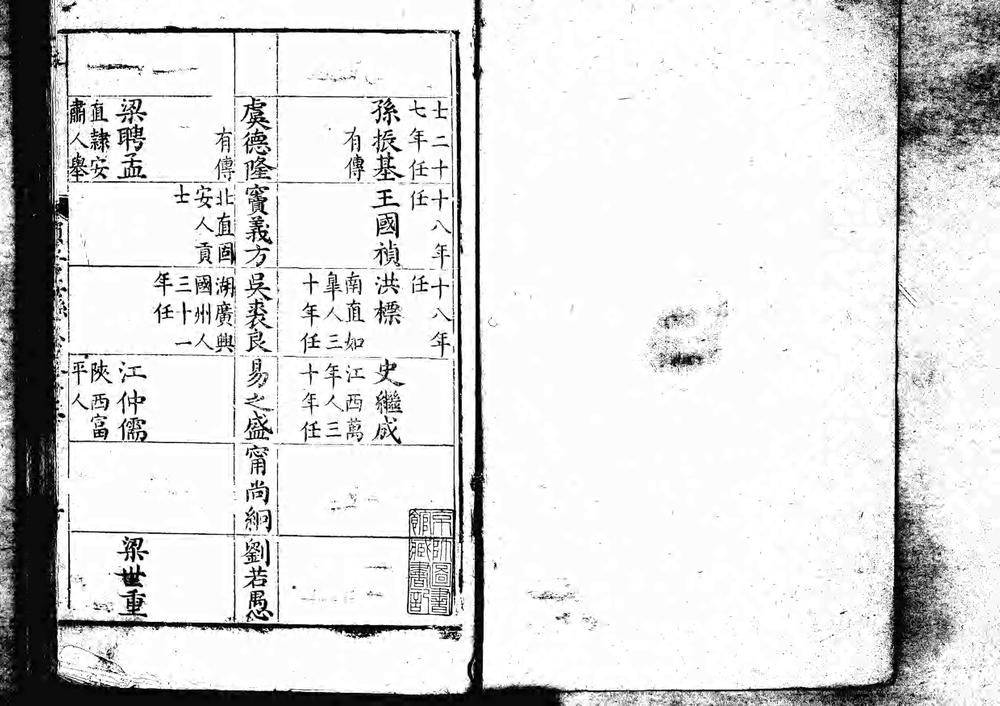 士二十
七年任
孫振基
有傳
虞德隆
有傳
梁聘孟
直隸安
肅人舉
十八年
任
王國禎
竇義方
北直固
安人貢
士
十八年
任
洪標
南直如
皐人三
十年任
吳裘良
湖廣興
國州人
三十一
年任
史繼成
江西萬
年人三
十年任
易之盛
江仲儒
陝西富
平人
甯尚絅
劉若愚
梁世重
京師圖書
館藏書記